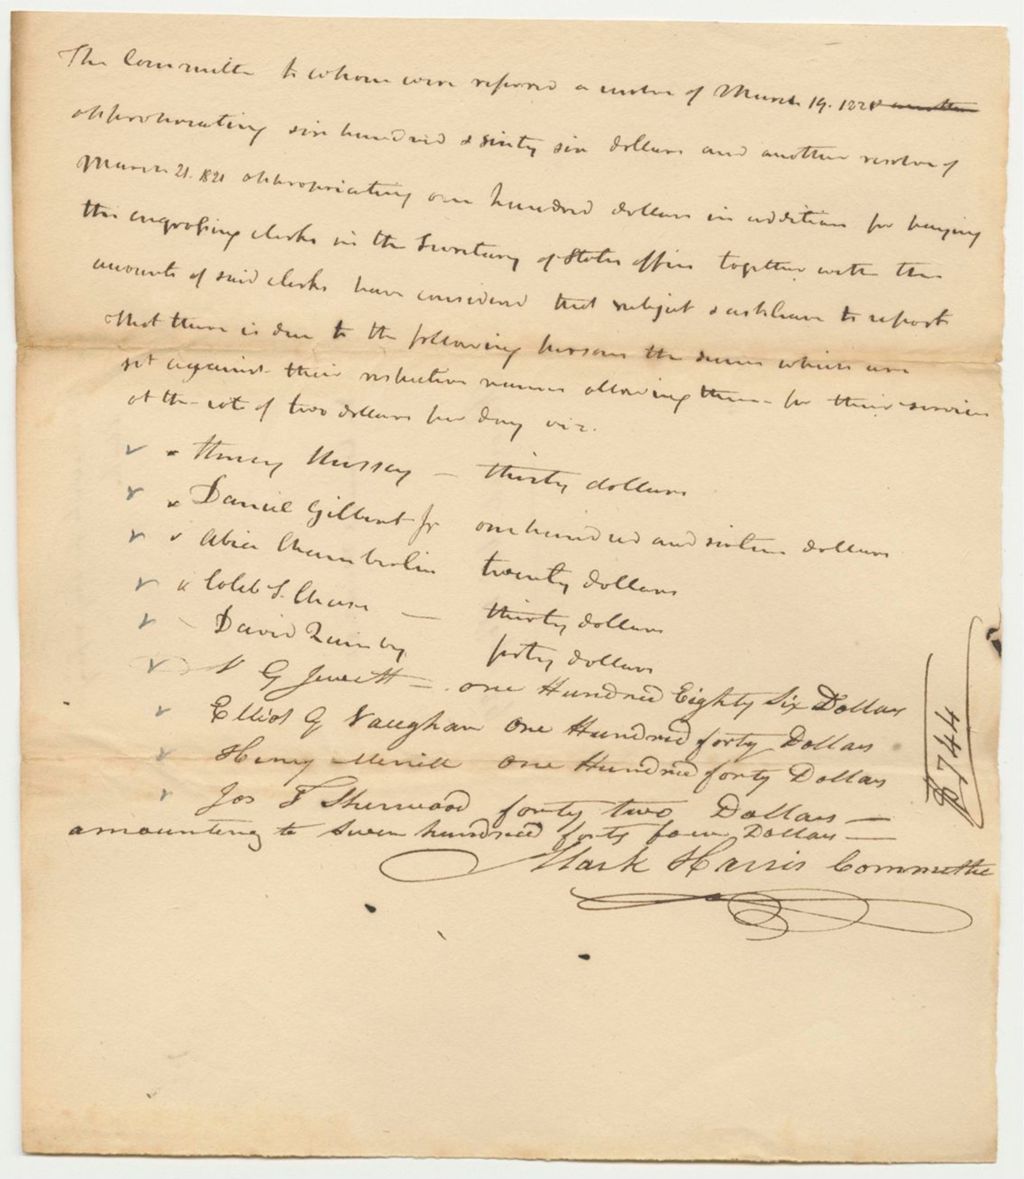 The Committee to whom were referred a resolve of March 19. 1821
appropriating six hundred & sixty six dollars and another resolve of
March 21. 1821 appropriating one hundred dollars in addition for paying
the engrossing clerks in the Secretary of States office together with the
amounts of said clerks have considered that subject & ask leave to report
that there is due to the following persons the sums which are
set against their respective names allowing them for their services
at the rate of two dollars per day viz.
Hussey — thirty dollars
Daniel Gilbert Jr one hundred and sixteen dollars
Abiel Chamberlin twenty dollars
Caleb S. Chase — thirty dollars
David Quimby forty dollars
G Jewett — one Hundred Eighty Six Dollars
Elliot G Vaughan one Hundred forty Dollars
Henry Merrill one Hundred forty Dollars
Jos T Sherwood forty two Dollars —
amounting to Seven hundred forty four Dollars —
Mark Harris Committee
$744